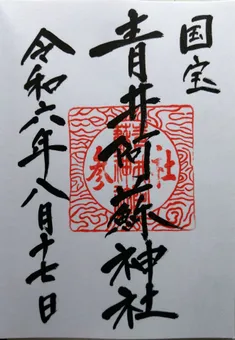 国宝
青井阿蘇神社
参社
令和六年八月十七日